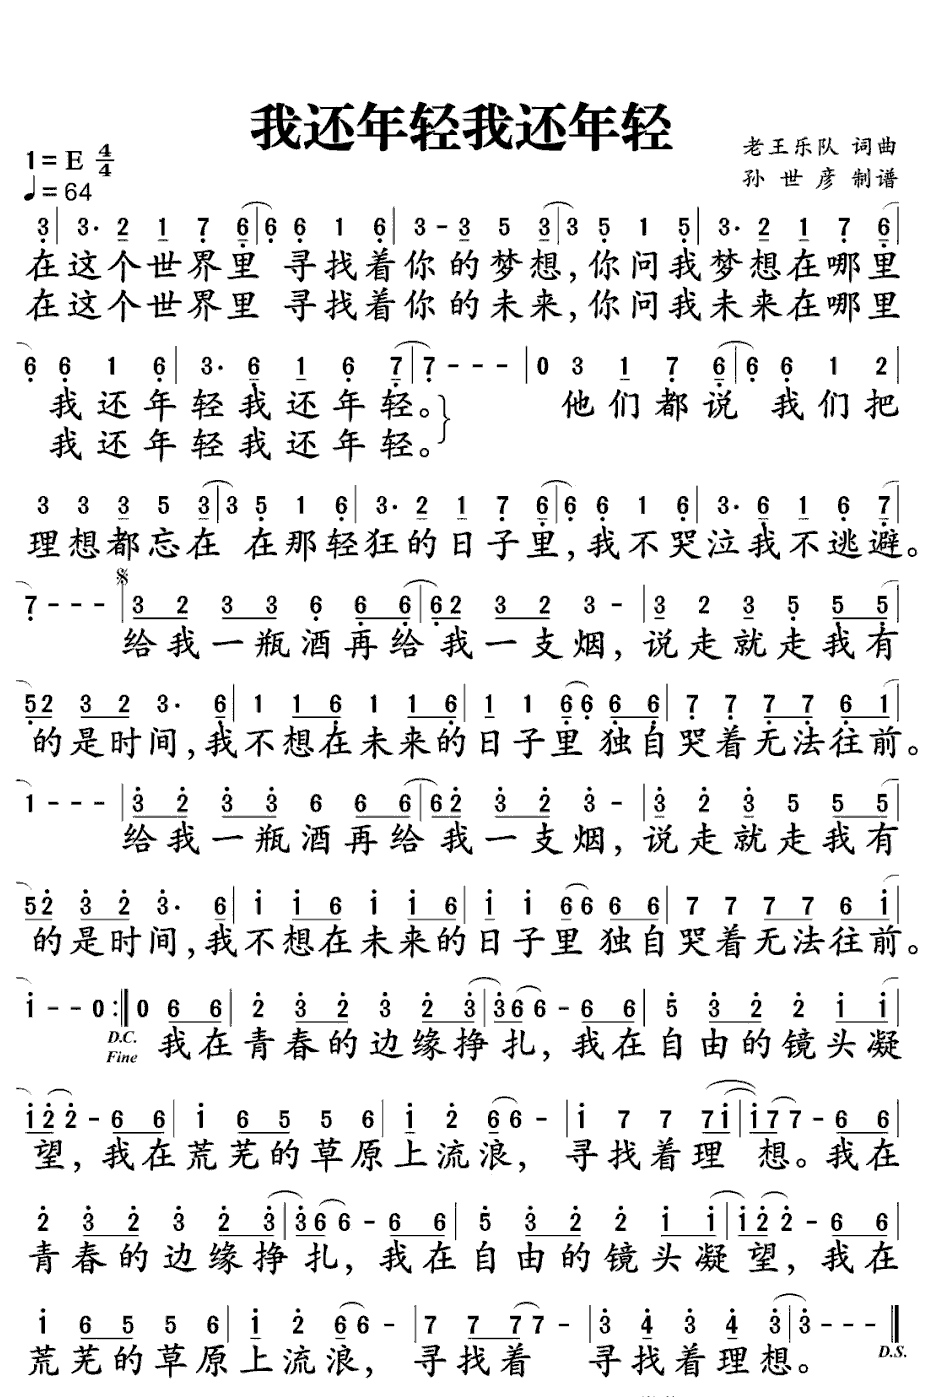 我还年轻我还年轻
老王乐队 词曲
孙世彦 制谱
1=E 4/4
♩=64
3| 3· 2 1 7 6|6 6 1 6| 3 - 3 5 3|3 5 1 5| 3· 2 1 7 6|
在这个世界里 寻找着你的梦想,你问我梦想在哪里
在这个世界里 寻找着你的未来,你问我未来在哪里
6 6 1 6| 3· 6 1 6 7|7 - - -| 0 3 1 7 6|6 6 1 2|
我还年轻我还年轻。 他们都说 我们把
我还年轻我还年轻。
3 3 3 5 3|3 5 1 6| 3· 2 1 7 6|6 6 1 6| 3· 6 1 6 7|
理想都忘在 在那轻狂的日子里,我不哭泣我不逃避。
7 - - -| 3 2 3 3 6 6 6|62 3 2 3 -| 3 2 3 5 5 5|
给我一瓶酒再给我一支烟,说走就走我有
52 3 2 3· 6| 1 1 6 1 1 6| 1 1 66 6 6| 7 7 7 7 6 1|
的是时间,我不想在未来的日子里 独自哭着无法往前。
1 - - -| 3 2 3 3 6 6 6|62 3 2 3 -| 3 2 3 5 5 5|
给我一瓶酒再给我一支烟,说走就走我有
52 3 2 3· 6| 1 1 6 1 1 6| 1 1 66 6 6| 7 7 7 7 6 1|
的是时间,我不想在未来的日子里 独自哭着无法往前。
1 - - 0 :|| 0 6 6| 2 3 2 3 2 3|366 - 6 6| 5 3 2 2 1 1|
D.C.
Fine
我在青春的边缘挣扎,我在自由的镜头凝
122 - 6 6| 1 6 5 5 6| 1 2 66 -| 1 7 7 71|177 - 6 6|
望,我在荒芜的草原上流浪,寻找着理想。我在
2 3 2 3 2 3|366 - 6 6| 5 3 2 2 1 1|122 - 6 6|
青春的边缘挣扎,我在自由的镜头凝望,我在
1 6 5 5 6| 1 2 66 -| 7 7 77 -| 3 4 3 4 3|3 - - -||
D.S.
荒芜的草原上流浪,寻找着 寻找着理想。